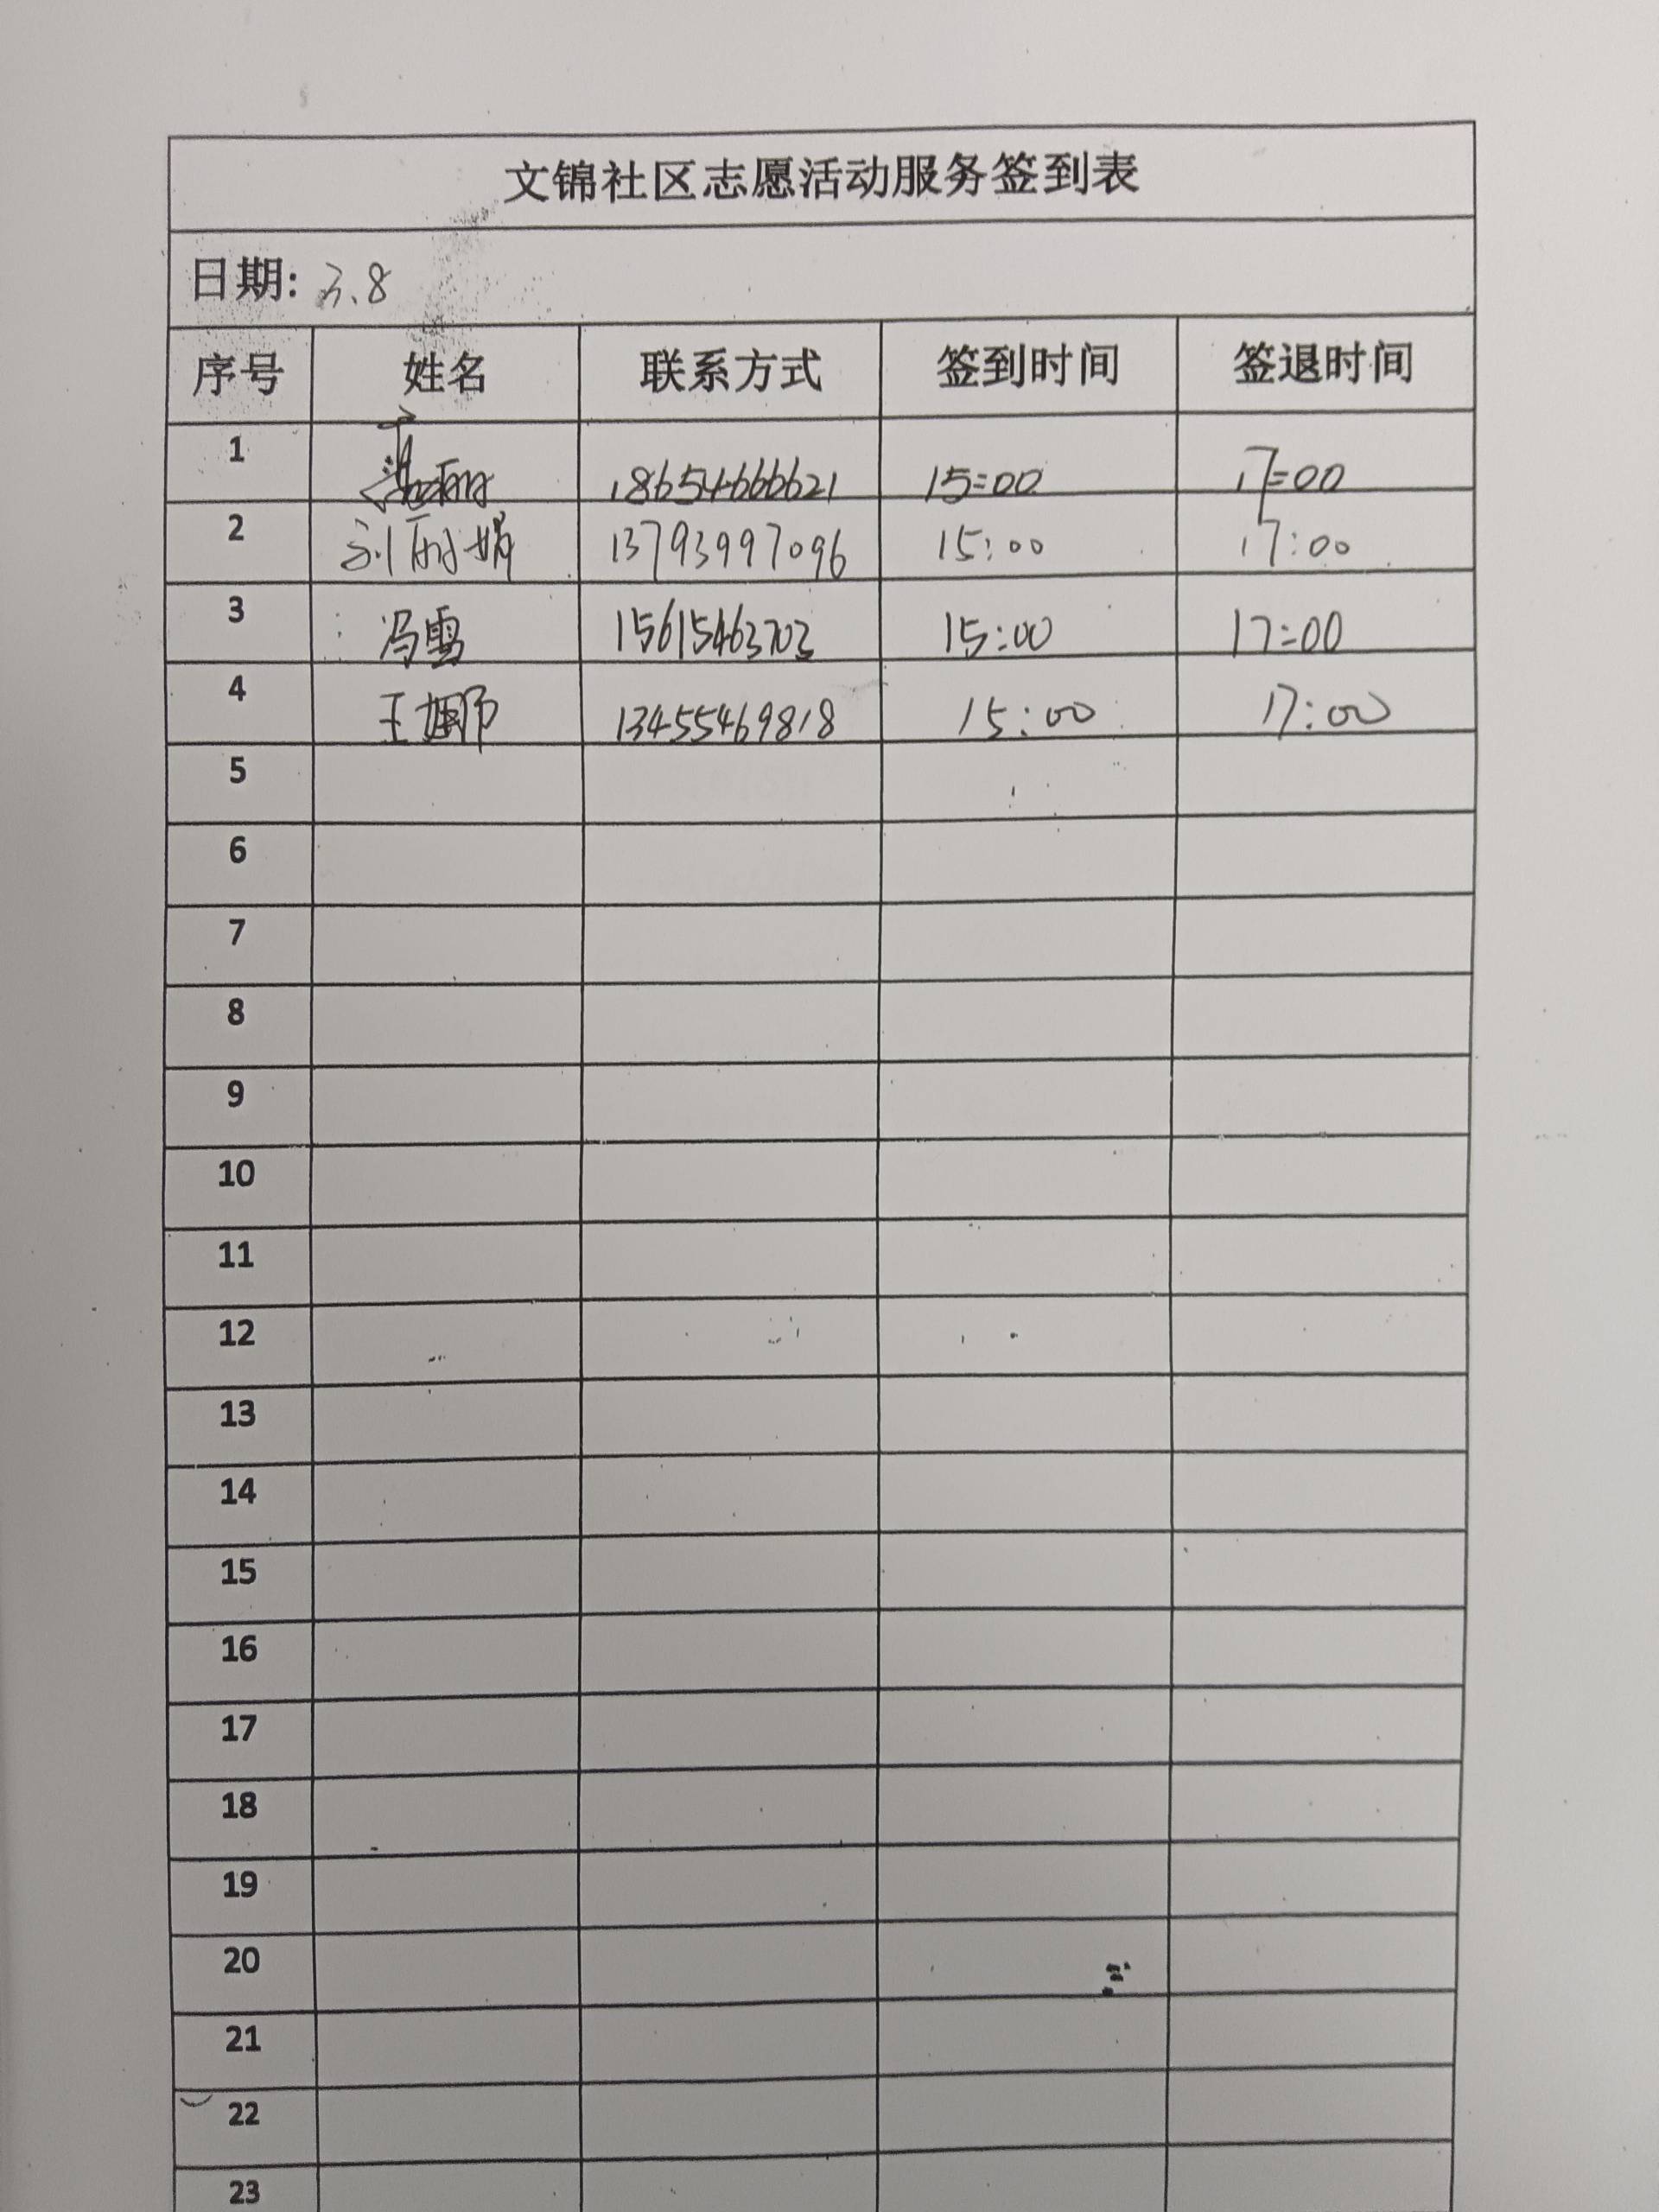 文锦社区志愿活动服务签到表
日期: 3.8
序号 姓名 联系方式 签到时间 签退时间
1 18654666621 15:00 17:00
2 刘丽娟 13793997096 15:00 17:00
3 冯雪 15615463703 15:00 17:00
4 王娜 13455469818 15:00 17:00
5
6
7
8
9
10
11
12
13
14
15
16
17
18
19
20
21
22
23